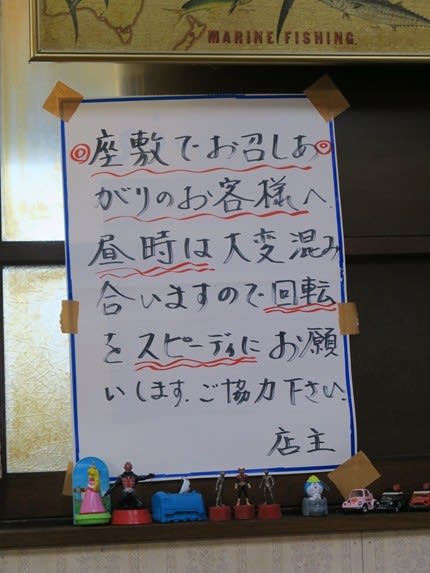 MARINE FISHING
◎座敷でお召しあ
がりのお客様へ.
昼時は大変混み
合いますので回転
をスピーディにお願
いします.ご協力下さい.
店主